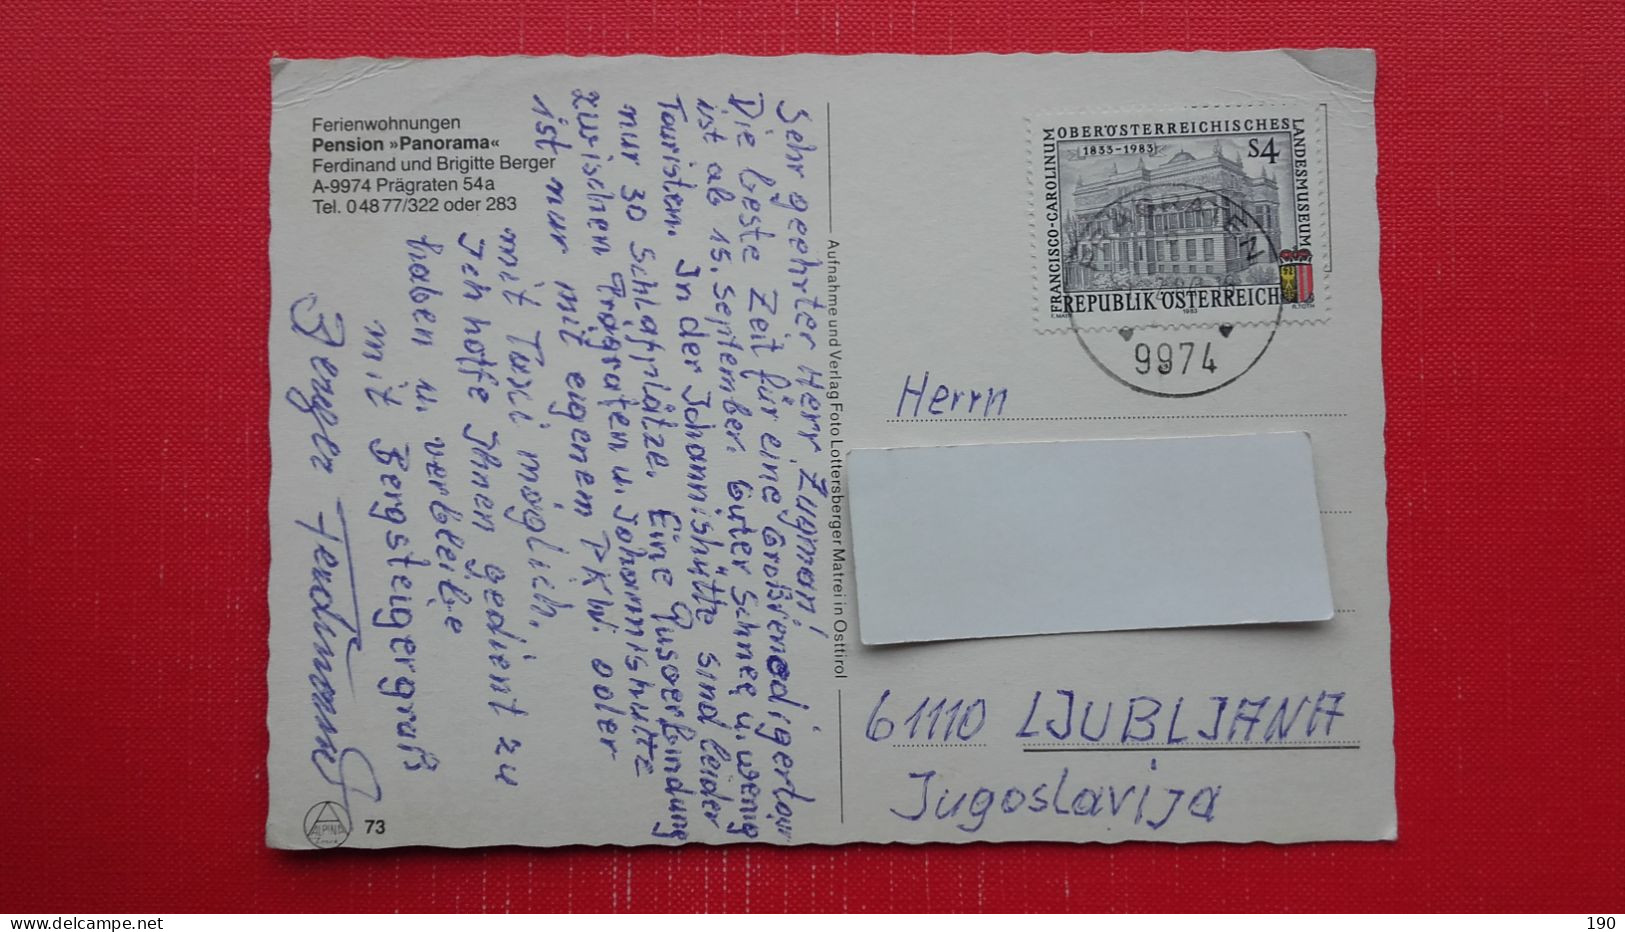 Ferienwohnungen
Pension »Panorama«
Ferdinand und Brigitte Berger
A-9974 Prägraten 54a
Tel. 0 48 77/322 oder 283
Sehr geehrter Herr Zugman!
Die beste Zeit für eine Großvenedigertour
ist ab 15. September. Guter Schnee u. wenig
Touristen. In der Johannishütte sind leider
nur 30 Schlafplätze. Eine Busverbindung
zwischen Prägraten u. Johannishütte
ist nur mit eigenem PKW. oder
mit Taxi möglich.
Ich hoffe Ihnen gedient zu
haben u. verbleibe
mit Bergsteigergruß
Berger Ferdinand
ALPINA
73
Aufnahme und Verlag Foto Lottersberger Matrei in Osttirol
OBERÖSTERREICHISCHES
LANDESMUSEUM
FRANCISCO-CAROLINUM
1833-1983
S4
REPUBLIK ÖSTERREICH
1983
R.TOTH
PRÄGRATEN
9974
Herrn
61110 LJUBLJANA
Jugoslavija
190